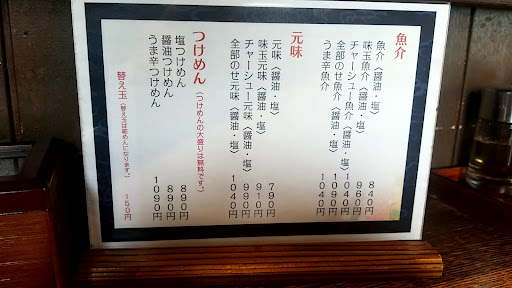 魚介
魚介〈醤油・塩〉 840円
味玉魚介〈醤油・塩〉 960円
チャーシュー魚介〈醤油・塩〉 1040円
全部のせ魚介〈醤油・塩〉 1090円
うま辛魚介 1040円
元味
元味〈醤油・塩〉 790円
味玉元味〈醤油・塩〉 910円
チャーシュー元味〈醤油・塩〉 990円
全部のせ元味〈醤油・塩〉 1040円
つけめん（つけめんの大盛りは無料です。）
塩つけめん 890円
醤油つけめん 890円
うま辛つけめん 1090円
替え玉（替え玉は細めんになります。） 150円